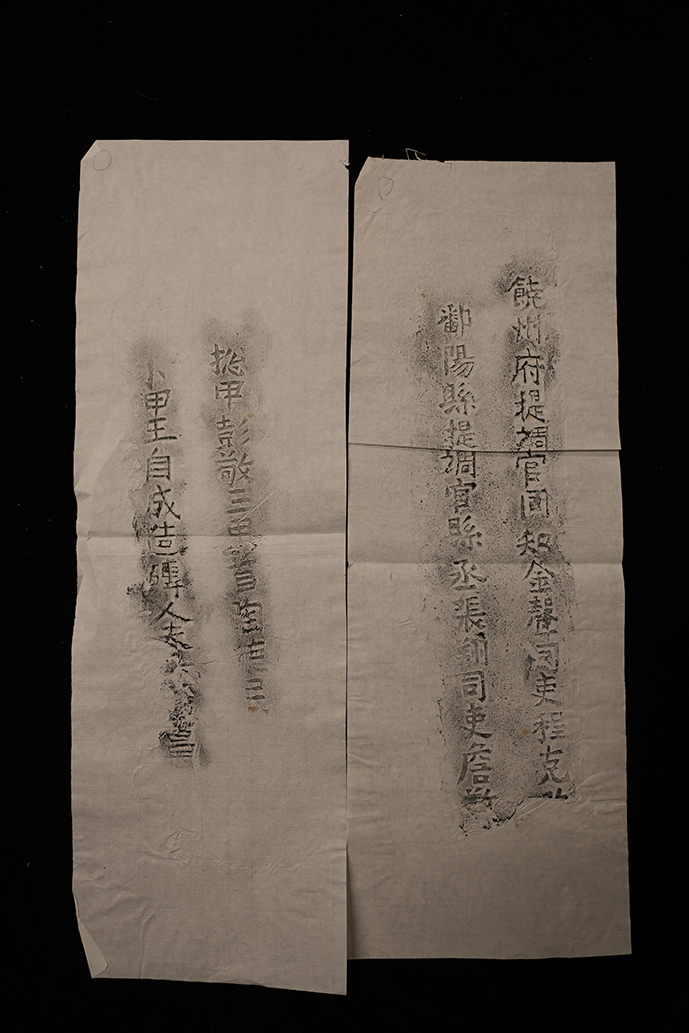 饒州府提調官同知金聲司吏程克
鄱陽縣提調官縣丞張翔司吏詹
揔甲彭敬三甲首陶
小甲王自成造磚人夫